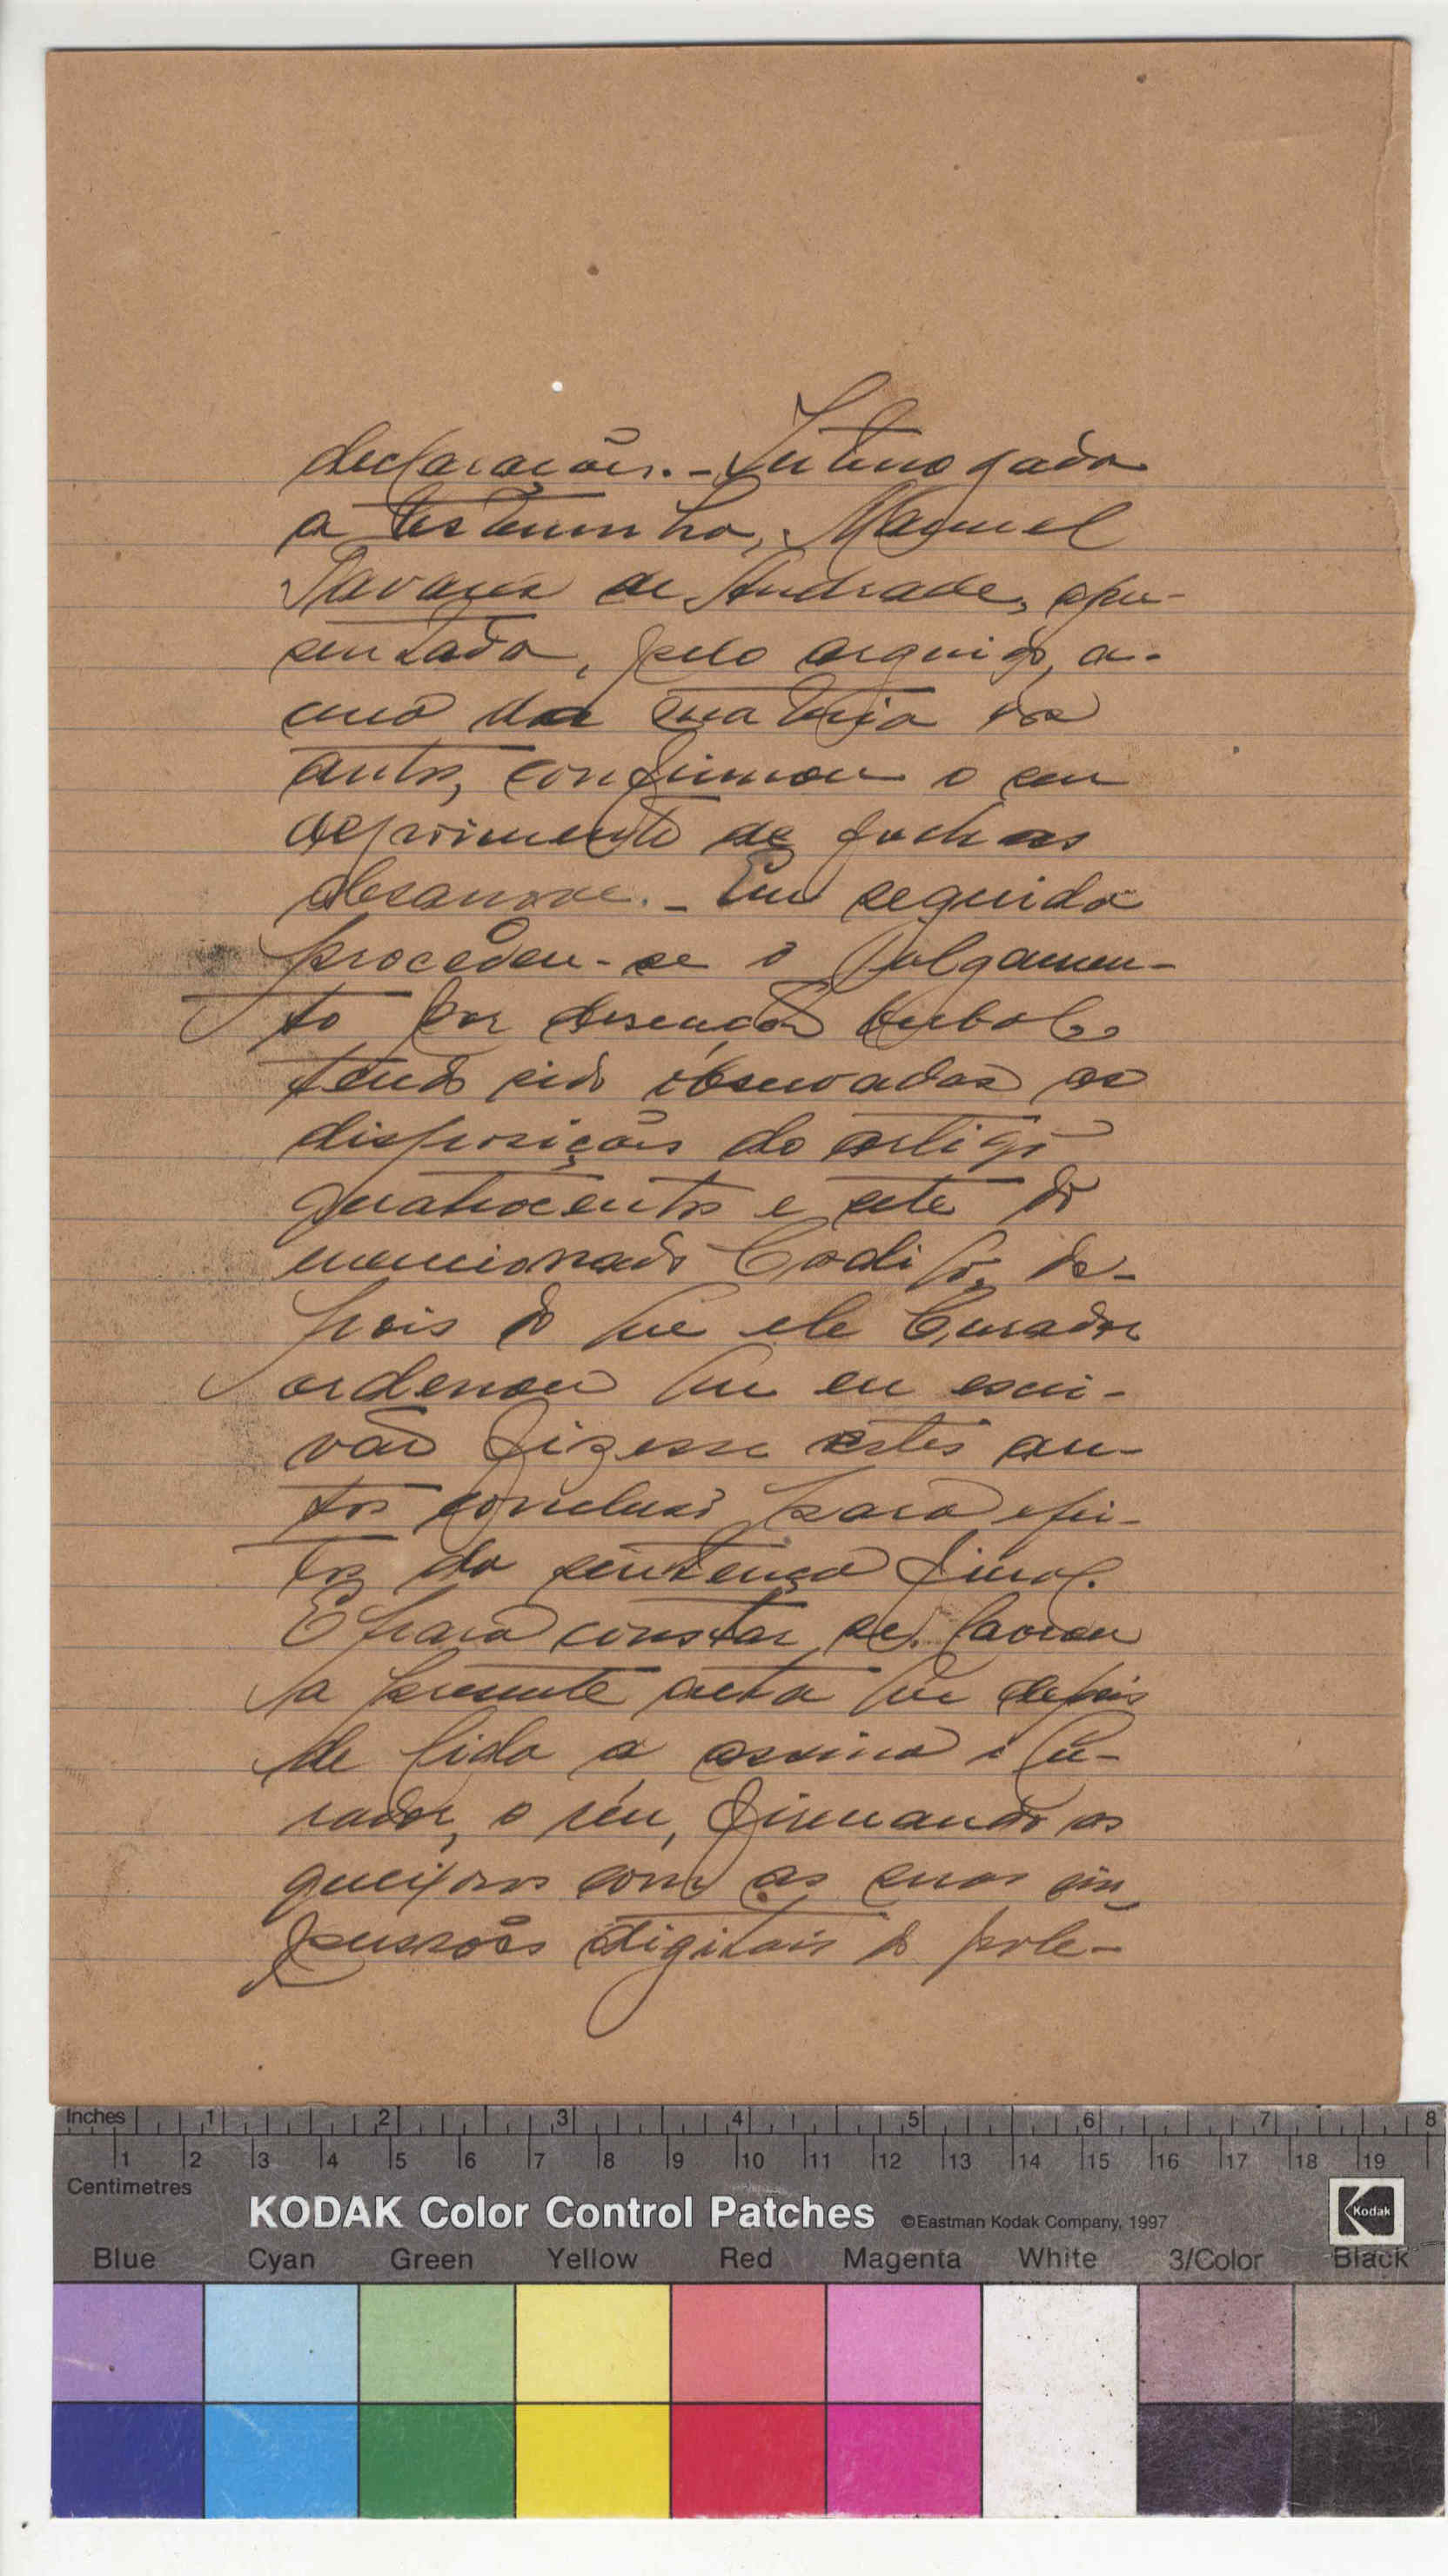 declarações. - Interrogada
a testemunha, Manuel
Tavares de Andrade, apre-
sentada, pelo arguido, a-
cerca da materia dos
autos, confirmou o seu
depoimento de folhas
desanove. - Em seguida
procedeu-se o julgamen-
to por discução verbal
tendo sido observadas as
disposições do artigo
quatrocentos e sete do
mencionado Codigo, de-
pois do que ele Curador
ordenou que eu escri-
vão fizesse estes au-
tos conclusos para efei-
tos da sentença final.
E para constar se lavrou
a presente acta que depois
de lida a assina o Cu-
rador, o réu, firmando os
queixosos com as suas im
pressões digitais do pole-
Inches 1 2 3 4 5 6 7 8
1 2 3 4 5 6 7 8 9 10 11 12 13 14 15 16 17 18 19
Centimetres
KODAK Color Control Patches ©Eastman Kodak Company, 1997 Kodak
Blue Cyan Green Yellow Red Magenta White 3/Color Black